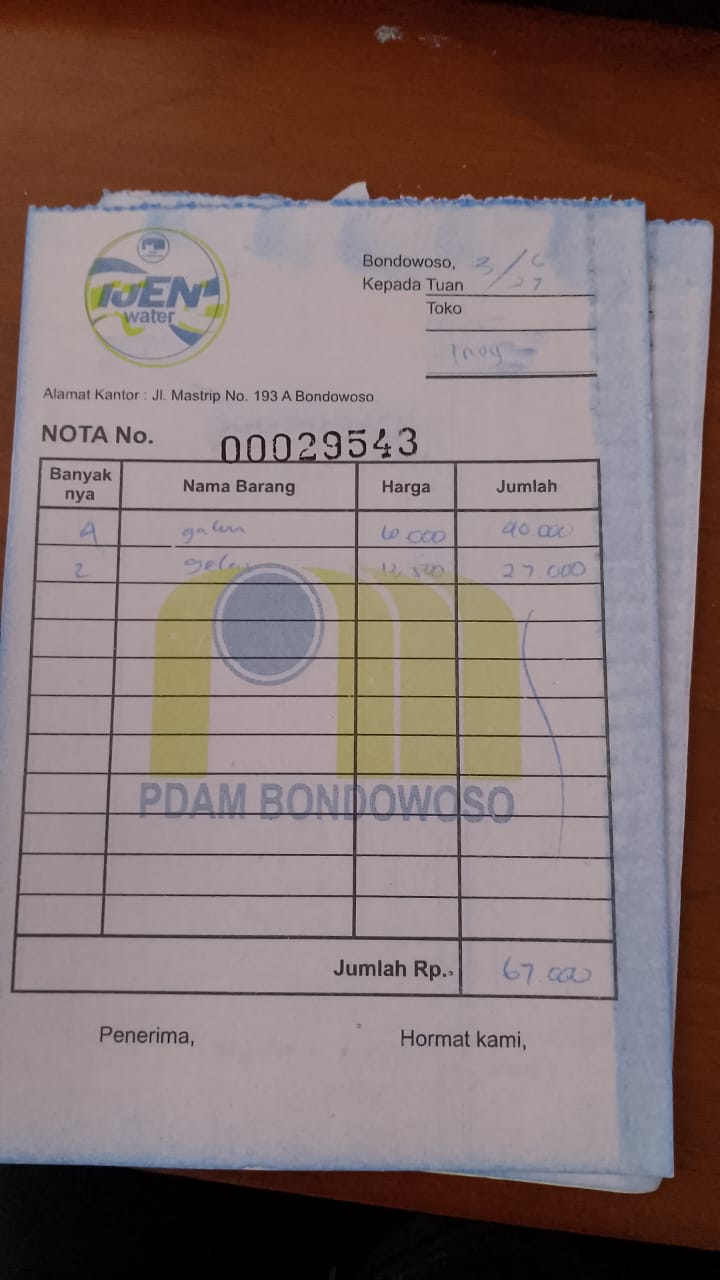 IJEN
water
Bondowoso, 3/6
Kepada Tuan 27
Toko
Alamat Kantor : Jl. Mastrip No. 193 A Bondowoso
NOTA No. 00029543
Banyak nya Nama Barang Harga Jumlah
4 galon 10 000 40 000
2 galon 13 500 27 000
PDAM BONDOWOSO
Jumlah Rp. 67 000
Penerima, Hormat kami,